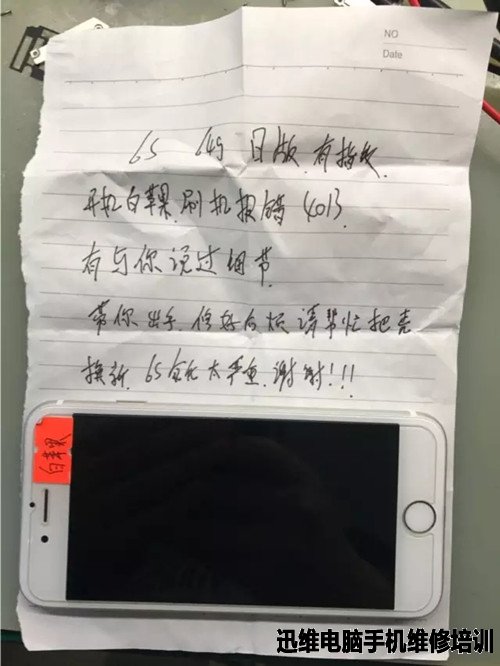 NO
Date
6S 64g 日版 有指纹
开机白苹果.刷机报错 4013
有与你说过细节
带你出手 修好后烦请帮忙把壳
换新. 6S 太严重.谢谢!!!
白苹果
迅维电脑手机维修培训